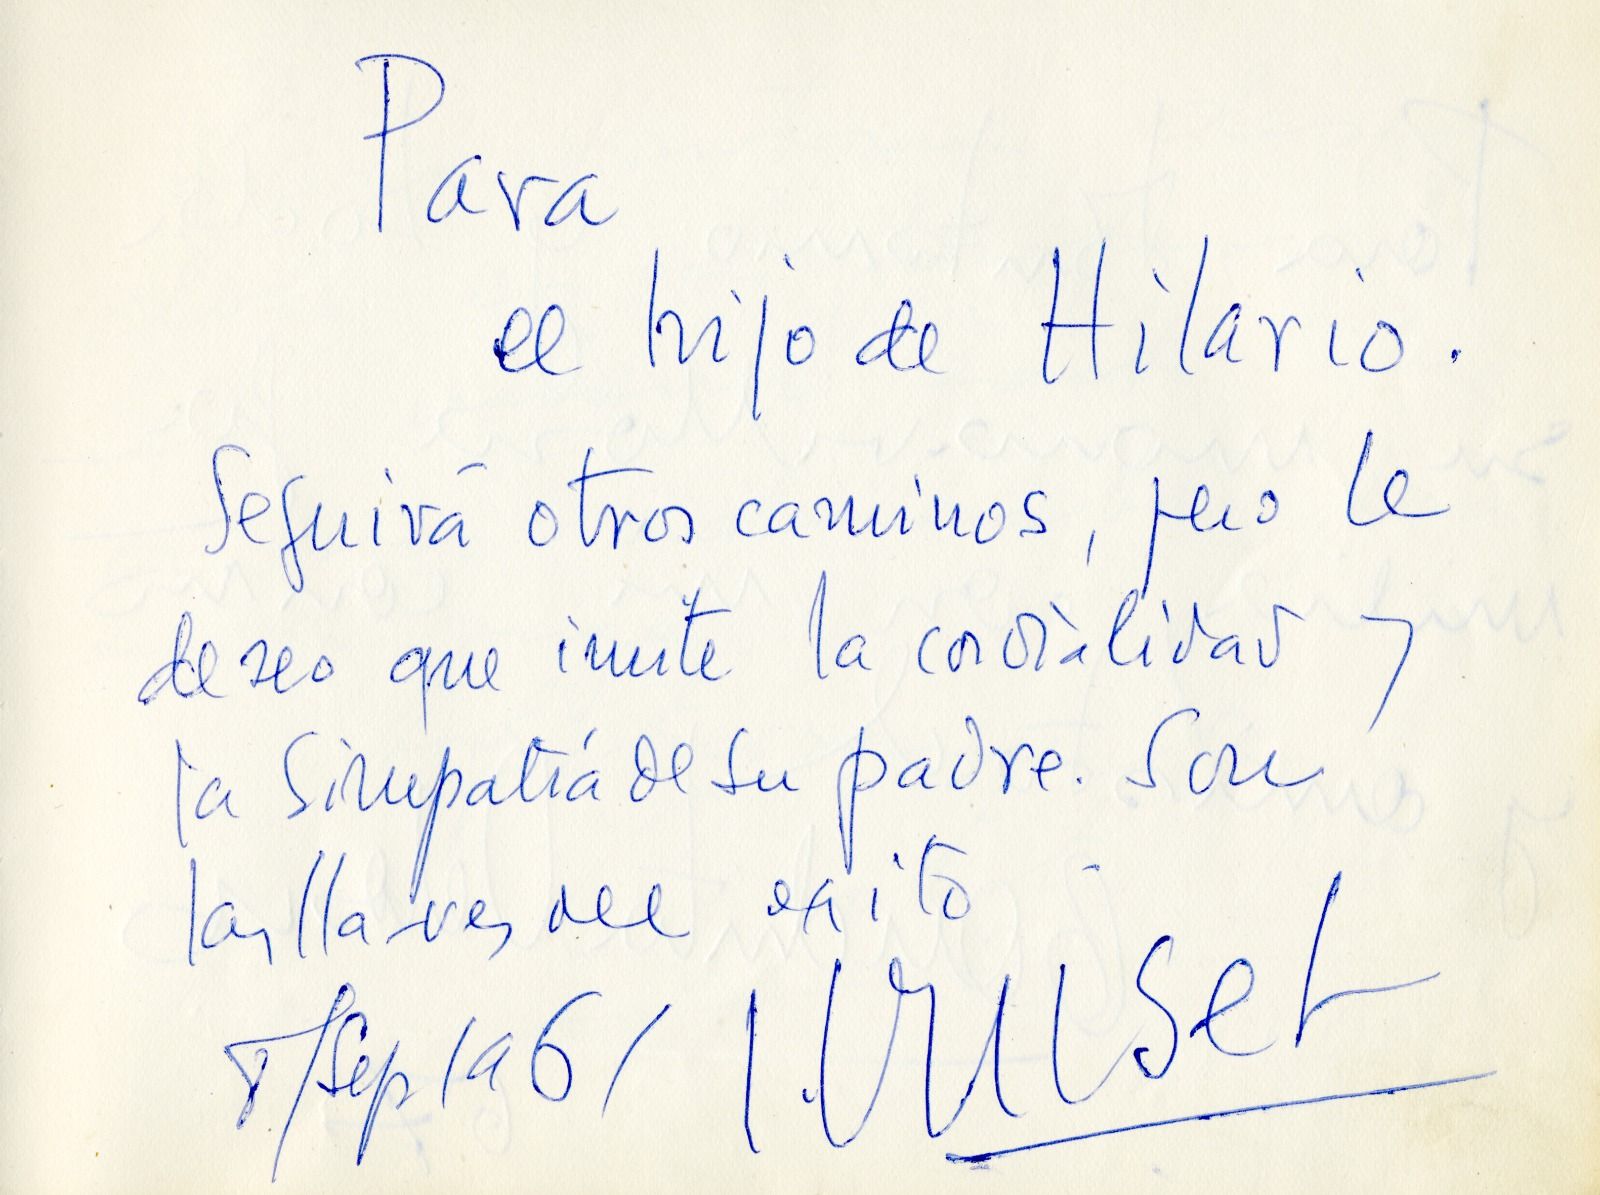 Para
el hijo de Hilario.
Seguirá otros caminos, pero le
deseo que imite la cordialidad y
la simpatía de su padre. Son
las llaves del exito
8/Sep/1961